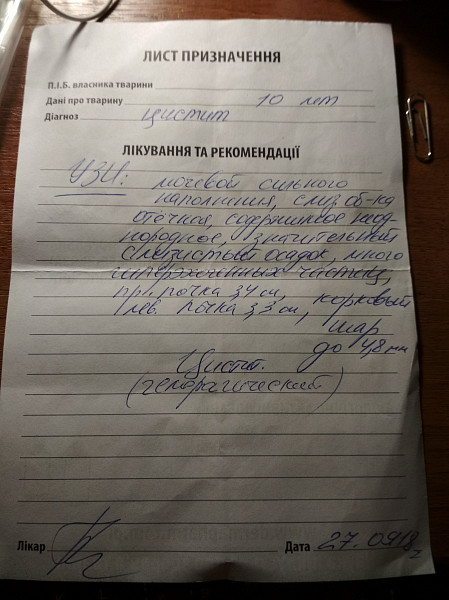 ЛИСТ ПРИЗНАЧЕННЯ
П.І.Б. власника тварини
Дані про тварину 10 лет
Діагноз цистит
ЛІКУВАННЯ ТА РЕКОМЕНДАЦІЇ
УЗИ: мочевой сильного
наполнения, слиз об-ка
отечная, содержимое неод-
нородное, значительный
слизистый осадок, много
гиперэхогенных частиц,
пр. почка 3,4 см,
лев. почка 3,3 см, корковый
шар
до 4,8 мм
Цистит.
(геморагический)
Лікар
Дата 27.09.18